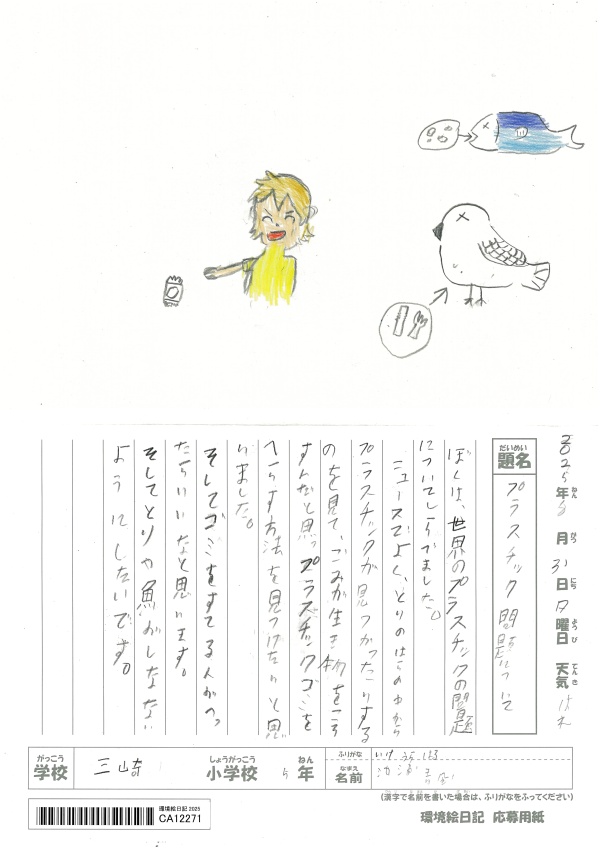 2025年8月31日日曜日 天気 はれ
ねん がつ にち ようび てんき
だいめい
題名
プラスチック問題について
ぼくは、世界のプラスチックの問題
についてしらべました。
ニュースでよく、とりのはらの中から
プラスチックが見つかったりする
のを見て、ごみが生き物をころ
すんだと思っプラスチックゴミを
へらす方法を見つけたいと思
いました。
そしてゴミをすてる人がへっ
たらいいなと思います。
そしてとりや魚がしなない
ようにしたいです。
がっこう しょうがっこう ねん ふりがな
学校 三崎 小学校 5年
なまえ
名前
(漢字で名前を書いた場合は、ふりがなをふってください)
環境絵日記 2025
CA12271
環境絵日記 応募用紙